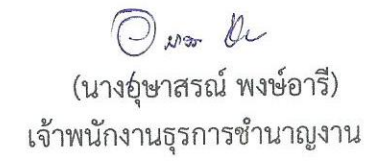 (นางอุษาสรณ์ พงษ์อารี)
เจ้าพนักงานธุรการชำนาญงาน